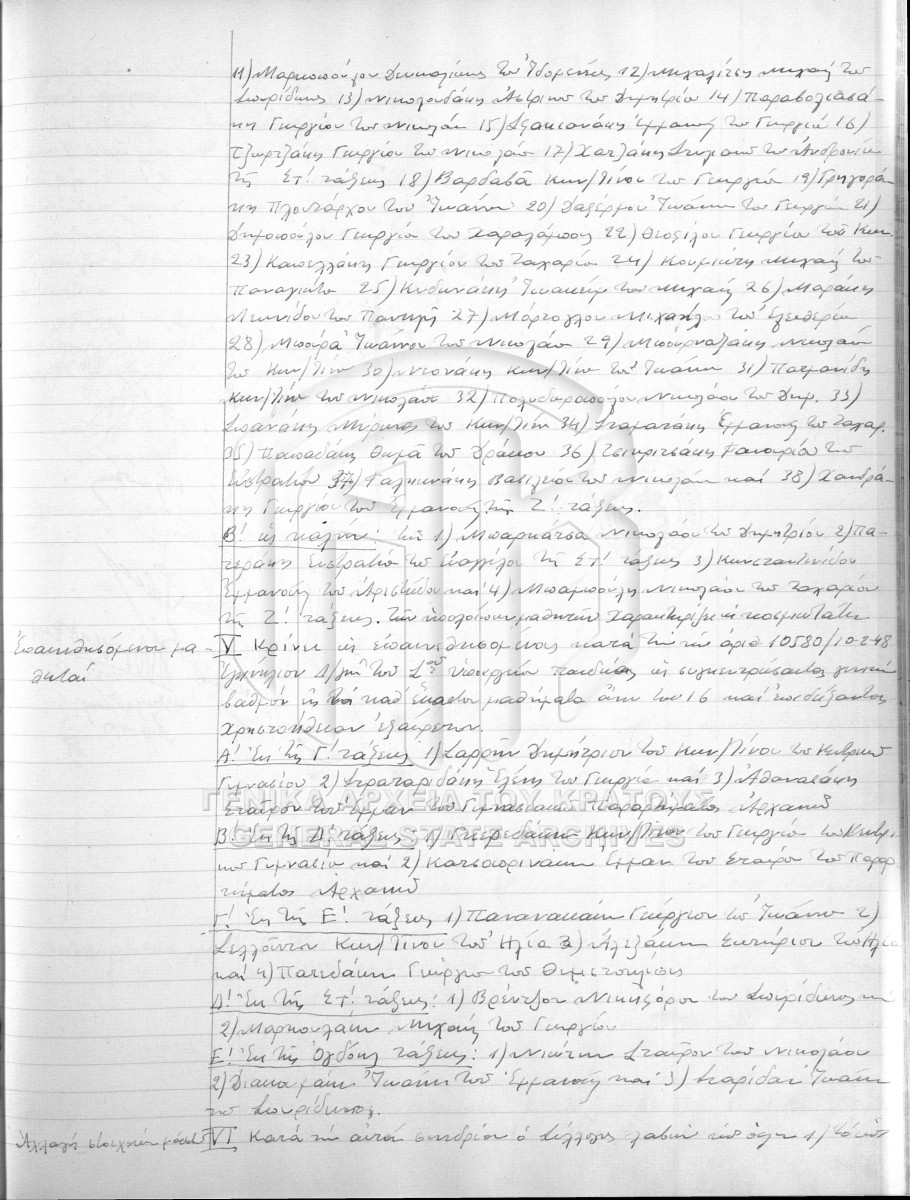 11) Μαρκοπούλου Δευκαλίωνος τοῦ Ἰδομενέως 12) Μιχαλίτση Μιχαήλ τοῦ
Σπυρίδωνος 13) Νικολουδάκη Ἀστρινοῦ τοῦ Δημητρίου 14)
Γεωργίου τοῦ Νικολάου 15) Ἐμμανουήλ τοῦ Γεωργίου 16)
Τζωρτζάκη Γεωργίου τοῦ Νικολάου 17) Χατζάκη Στυλιανοῦ τοῦ Ἀνδρονίκου
τῆς ΣΤ! τάξεως 18) Βαρδαβᾶ Κων/τίνου τοῦ Γεωργίου 19) Γρηγορά-
κη Πλουτάρχου τοῦ Ἰωάννου 20) Δαξέρμου Ἰωάννου τοῦ Γεωργίου 21)
Δημοπούλου Γεωργίου τοῦ Χαραλάμπους 22) Θεοφίλου Γεωργίου τοῦ Κων.
23) Καπελλάκη Γεωργίου τοῦ Ζαχαρία 24) Κουμιώτη Μιχαήλ τοῦ
Παναγιώτου 25) Κυδωνάκη Ἰωακείμ τοῦ Μιχαήλ 26) Μαράκη
Λεωνίδου τοῦ Παντελῆ 27) Μάρτογλου Μιχαήλ τοῦ Ἐλευθερίου
28) Μπουρᾶ Ἰωάννου τοῦ Νικολάου 29) Μπουρναζάκη Νικολάου
τοῦ Κων/τίνου 30) Νεονάκη Κων/τίνου τοῦ Ἰωάννου 31) Πατμανίδη
Κων/τίνου τοῦ Νικολάου 32) Πολυδωροπούλου Νικολάου τοῦ Δημ. 33)
Σπανάκη Μύρωνος τοῦ Κων/τίνου 34) Σταματάκη Ἐμμανουήλ τοῦ Ζαχαρ.
35) Παπαδάκη Θωμᾶ τοῦ Δράκου 36) Τσιριτάκη Φανουρίου τοῦ
Εὐστρατίου 37) Φαλκωνάκη Βασιλείου τοῦ Νικολάου καί 38) Χανδρά-
κη Γεωργίου τοῦ Ἐμμανουήλ τῆς Ζ! τάξεως.
Β! ὡς καλήν: τῶν 1) Μπαρμπάτσα Νικολάου τοῦ Δημητρίου 2) Πα-
τεράκη Εὐστρατίου τοῦ Εὐαγγέλου τῆς ΣΤ! τάξεως 3) Κωνσταντινίδου
Ἐμμανουήλ τοῦ Ἀριστείδου καί 4) Μπαμπούλη Νικολάου τοῦ Ζαχαρίου
τῆς Ζ! τάξεως. Τῶν ὑπολοίπων μαθητῶν χαρακτηρίζει ὡς κοσμιωτάτη
Ἐπαινεθησόμενοι μα-
θηταί
V Κρίνει ὡς ἐπαινεθησομένους κατά τήν ὑπ' ἀριθ 10580/10-2-48
Ἐγκύκλιον Δ/γήν τοῦ Σ. Ὑπουργείου Παιδείας ὡς συγκεντρώσαντας γενικόν
βαθμόν εἰς τά καθ' ἕκαστον μαθήματα ἄνω τοῦ 16 καί ἐπιδείξαντας
χρηστοήθειαν ἐξαίρετον.
Α! Ἐκ τῆς Γ! τάξεως 1) Σαρρῆν Δημήτριον τοῦ Κων/τίνου τοῦ Κεντρικοῦ
Γυμνασίου 2) Στραταριδάκη Ἑλένη τοῦ Γεωργίου καί 3) Ἀθανασάκη
Σταῦρον τοῦ Ἐμμαν τοῦ Γυμνασιακοῦ Παραρτήματος Ἀρχανῶν
Β Ἐκ τῆς Δ! τάξεως 1) Κων/τίνον τοῦ Γεωργίου τοῦ Κεντρι-
κοῦ Γυμνασίου καί 2) Κατσοπρινάκη Ἐμμαν τοῦ Σταύρου τοῦ Παραρ
τήματος Ἀρχανῶν
Γ! Ἐκ τῆς Ε! τάξεως 1) Πανανακάκη Γεώργιον τοῦ Ἰωάννου 2)
Σελλόντον Κων/τίνον τοῦ Ἠλία 3) Ἀλεξάκην Σωτήριον τοῦ Ἠλία
καί 4) Πατεδάκην Γεώργιον τοῦ Θεμιστοκλέους
Δ! Ἐκ τῆς ΣΤ! τάξεως: 1) Βρέντζον Νικηφόρον τοῦ Σπυρίδωνος καί
2) Μαρκουλάκην Μιχαήλ τοῦ Γεωργίου
Ε! Ἐκ τῆς Ὀγδόης τάξεως: 1) Νιώτην Σταῦρον τοῦ Νικολάου
2) Διακομάκην Ἰωάννην τοῦ Ἐμμανουήλ καί 3) Σταρίδαν Ἰωάννην
τοῦ Σπυρίδωνος.
Ἀλλαγή στοιχείων μαθητῶν
VI Κατά τήν αὐτήν συνεδρίαν ὁ Σύλλογος λαβών ὑπ' ὄψιν 1) τό ὑπ'
ΓΕΝΙΚΑ ΑΡΧΕΙΑ ΤΟΥ ΚΡΑΤΟΥΣ
GENERAL STATE ARCHIVES